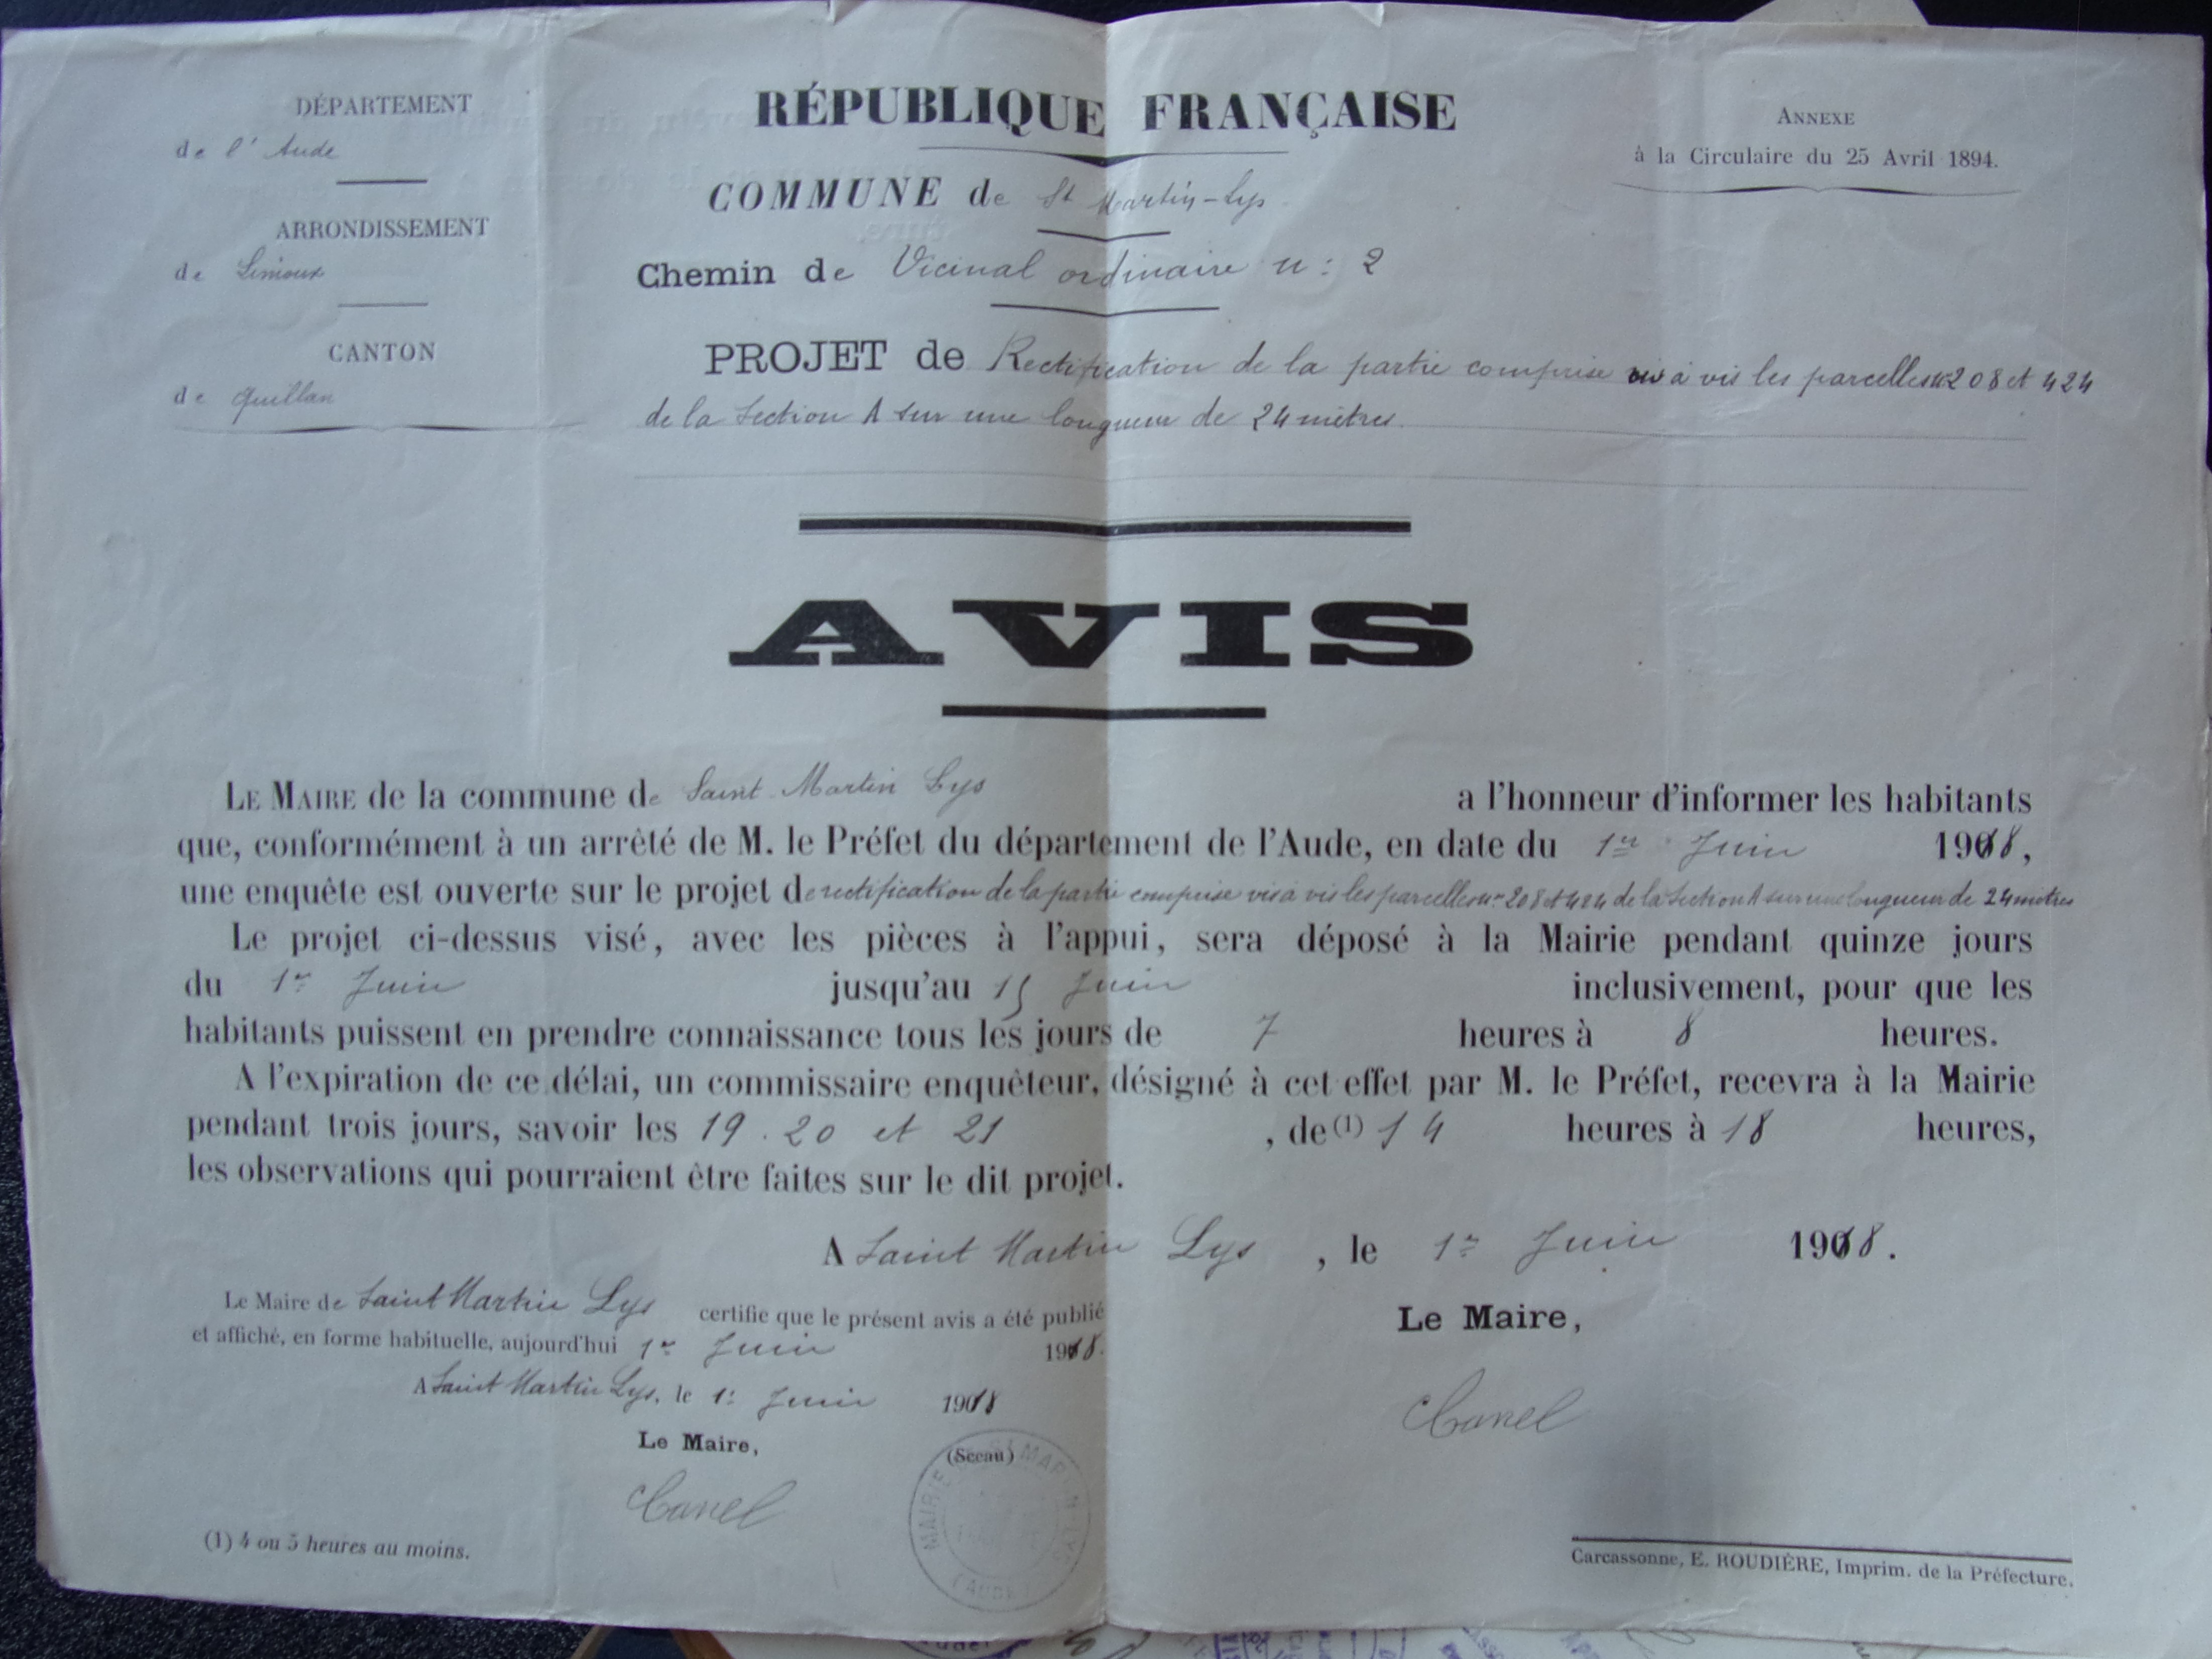 DÉPARTEMENT
de l'Aude
ARRONDISSEMENT
de Limoux
CANTON
de Quillan
RÉPUBLIQUE FRANÇAISE
COMMUNE de St Martin-Lys
Chemin de Vicinal ordinaire n: 2
PROJET de Rectification de la partie comprise vis à vis les parcelles n 208 et 424
de la Section A sur une longueur de 24 mètres
ANNEXE
à la Circulaire du 25 Avril 1894.
AVIS
LE MAIRE de la commune de Saint Martin Lys a l'honneur d'informer les habitants
que, conformément à un arrêté de M. le Préfet du département de l'Aude, en date du 1er Juin 1918,
une enquête est ouverte sur le projet de rectification de la partie comprise vis à vis les parcelles nos 208 et 424 de la Section A sur une longueur de 24 mètres
Le projet ci-dessus visé, avec les pièces à l'appui, sera déposé à la Mairie pendant quinze jours
du 1er Juin jusqu'au 15 Juin inclusivement, pour que les
habitants puissent en prendre connaissance tous les jours de 7 heures à 8 heures.
A l'expiration de ce délai, un commissaire enquêteur, désigné à cet effet par M. le Préfet, recevra à la Mairie
pendant trois jours, savoir les 19. 20 et 21, de (1) 14 heures à 18 heures,
les observations qui pourraient être faites sur le dit projet.
A Saint Martin Lys, le 1er Juin 1918.
Le Maire de Saint Martin Lys certifie que le présent avis a été publié
et affiché, en forme habituelle, aujourd'hui 1er Juin 1918.
A Saint Martin Lys, le 1er Juin 1918
Le Maire,
Canel
(Sceau)
MAIRIE DE ST MARTIN-LYS
(AUDE)
Le Maire,
Canel
(1) 4 ou 5 heures au moins.
Carcassonne, E. ROUDIÈRE, Imprim. de la Préfecture.